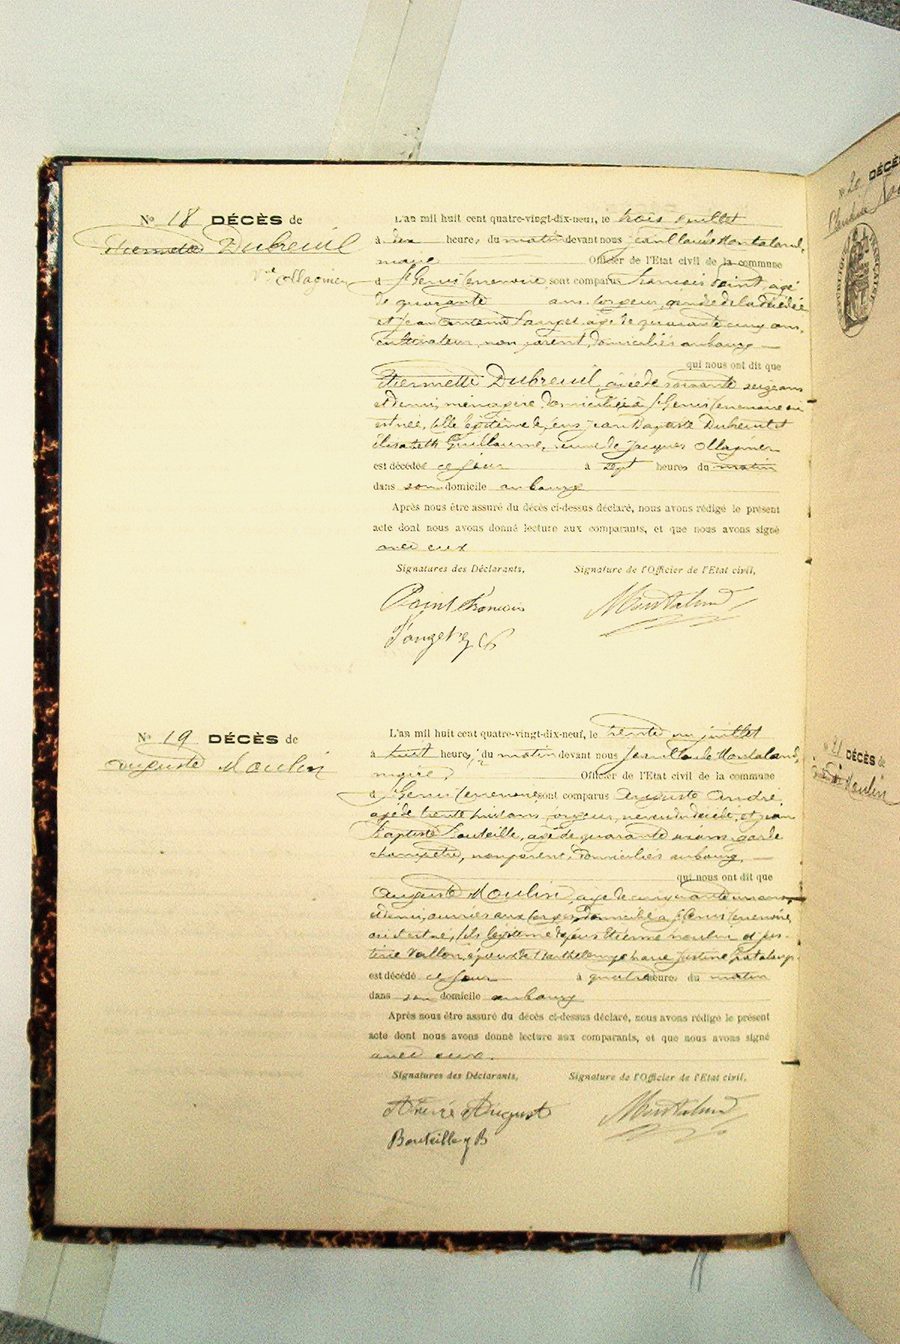 N° 18 DÉCÈS de
Etiennette Dubreuil
Vve Ollagnier
L'an mil huit cent quatre-vingt-dix-neuf, le trois juillet
à dix heures du matin devant nous Jean Claude Montaland,
maire Officier de l'Etat civil de la commune
d St Genis Terrenoire sont comparus François Point, agé
de quarante ans, forgeur, gendre de la décédée
et Jean Antoine agé de quarante cinq ans,
cultivateur, non parent, domiciliés au bourg
qui nous ont dit que
Etiennette Dubreuil, agée de soixante seize ans
et demi, ménagère, domiciliée à St Genis Terrenoire où
est née, fille légitime de feus Jean Baptiste Dubreuil et
Elisabeth Guillaume, veuve de Jacques Ollagnier
est décédée ce jour à sept heures du matin
dans son domicile au bourg
Après nous être assuré du décès ci-dessus déclaré, nous avons rédigé le présent
acte dont nous avons donné lecture aux comparants, et que nous avons signé
avec eux
Signatures des Déclarants, Signature de l'Officier de l'Etat civil,
Point François Montaland
N° 19 DÉCÈS de
Auguste Moulin
L'an mil huit cent quatre-vingt-dix-neuf, le trente un juillet
à huit heures du matin devant nous Jean Claude Montaland,
maire, Officier de l'Etat civil de la commune
d St Genis Terrenoire sont comparus Auguste André,
agé de trente huit ans, neveu du décédé, et Jean
Baptiste Bouteille, agé de quarante ans, garde
champêtre, non parent, domiciliés au bourg,
qui nous ont dit que
Auguste Moulin, agé de cinquante un ans
et demi, ouvrier aux forges, domicilié à St Genis Terrenoire,
où est né, fils légitime de feus Etienne Moulin et
époux de Marie Justine
est décédé ce jour à quatre heures du matin
dans son domicile au bourg
Après nous être assuré du décès ci-dessus déclaré, nous avons rédigé le présent
acte dont nous avons donné lecture aux comparants, et que nous avons signé
avec eux.
Signatures des Déclarants, Signature de l'Officier de l'Etat civil,
André August Montaland
Bouteille J B
N° 20 DÉCÈS
N° 21 DÉCÈS de
Moulin